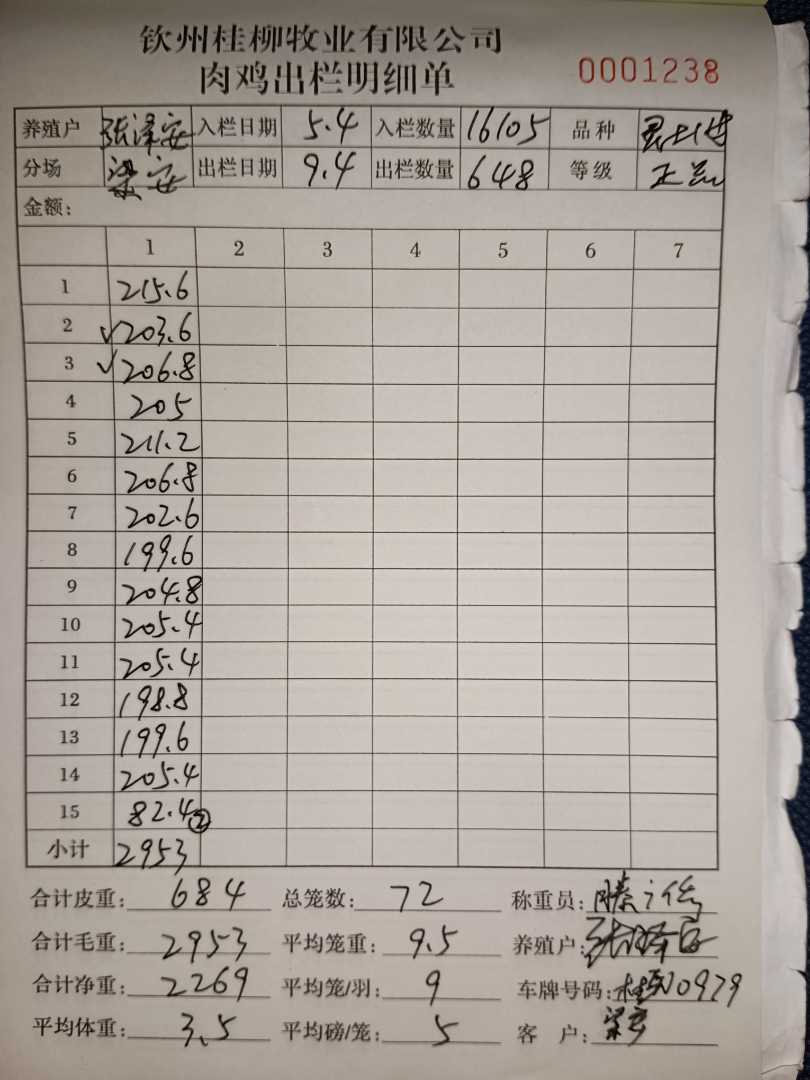 钦州桂柳牧业有限公司
肉鸡出栏明细单 0001238
养殖户 张泽安 入栏日期 5.4 入栏数量 16105 品种
分场 梁安 出栏日期 9.4 出栏数量 648 等级 正品
金额:
1 2 3 4 5 6 7
1 215.6
2 √203.6
3 √206.8
4 205
5 211.2
6 206.8
7 202.6
8 199.6
9 204.8
10 205.4
11 205.4
12 198.8
13 199.6
14 205.4
15 82.4②
小计 2953
合计皮重: 684 总笼数: 72 称重员:
合计毛重: 2953 平均笼重: 9.5 养殖户: 张泽安
合计净重: 2269 平均笼/羽: 9 车牌号码:
平均体重: 3.5 平均磅/笼: 5 客 户: 梁安